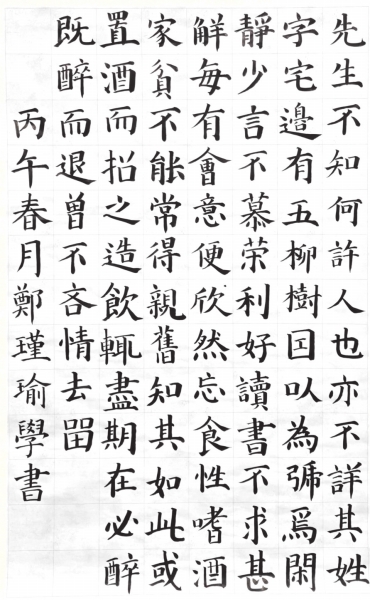 先生不知何許人也亦不詳其姓
字宅邊有五柳樹囙以為號焉閑
靜少言不慕荣利好讀書不求甚
觧每有會意便欣然忘食性嗜酒
家貧不能常得親舊知其如此或
置酒而招之造飲輒盡期在必醉
既醉而退曾不吝情去留
丙午春月鄭瑾瑜學書